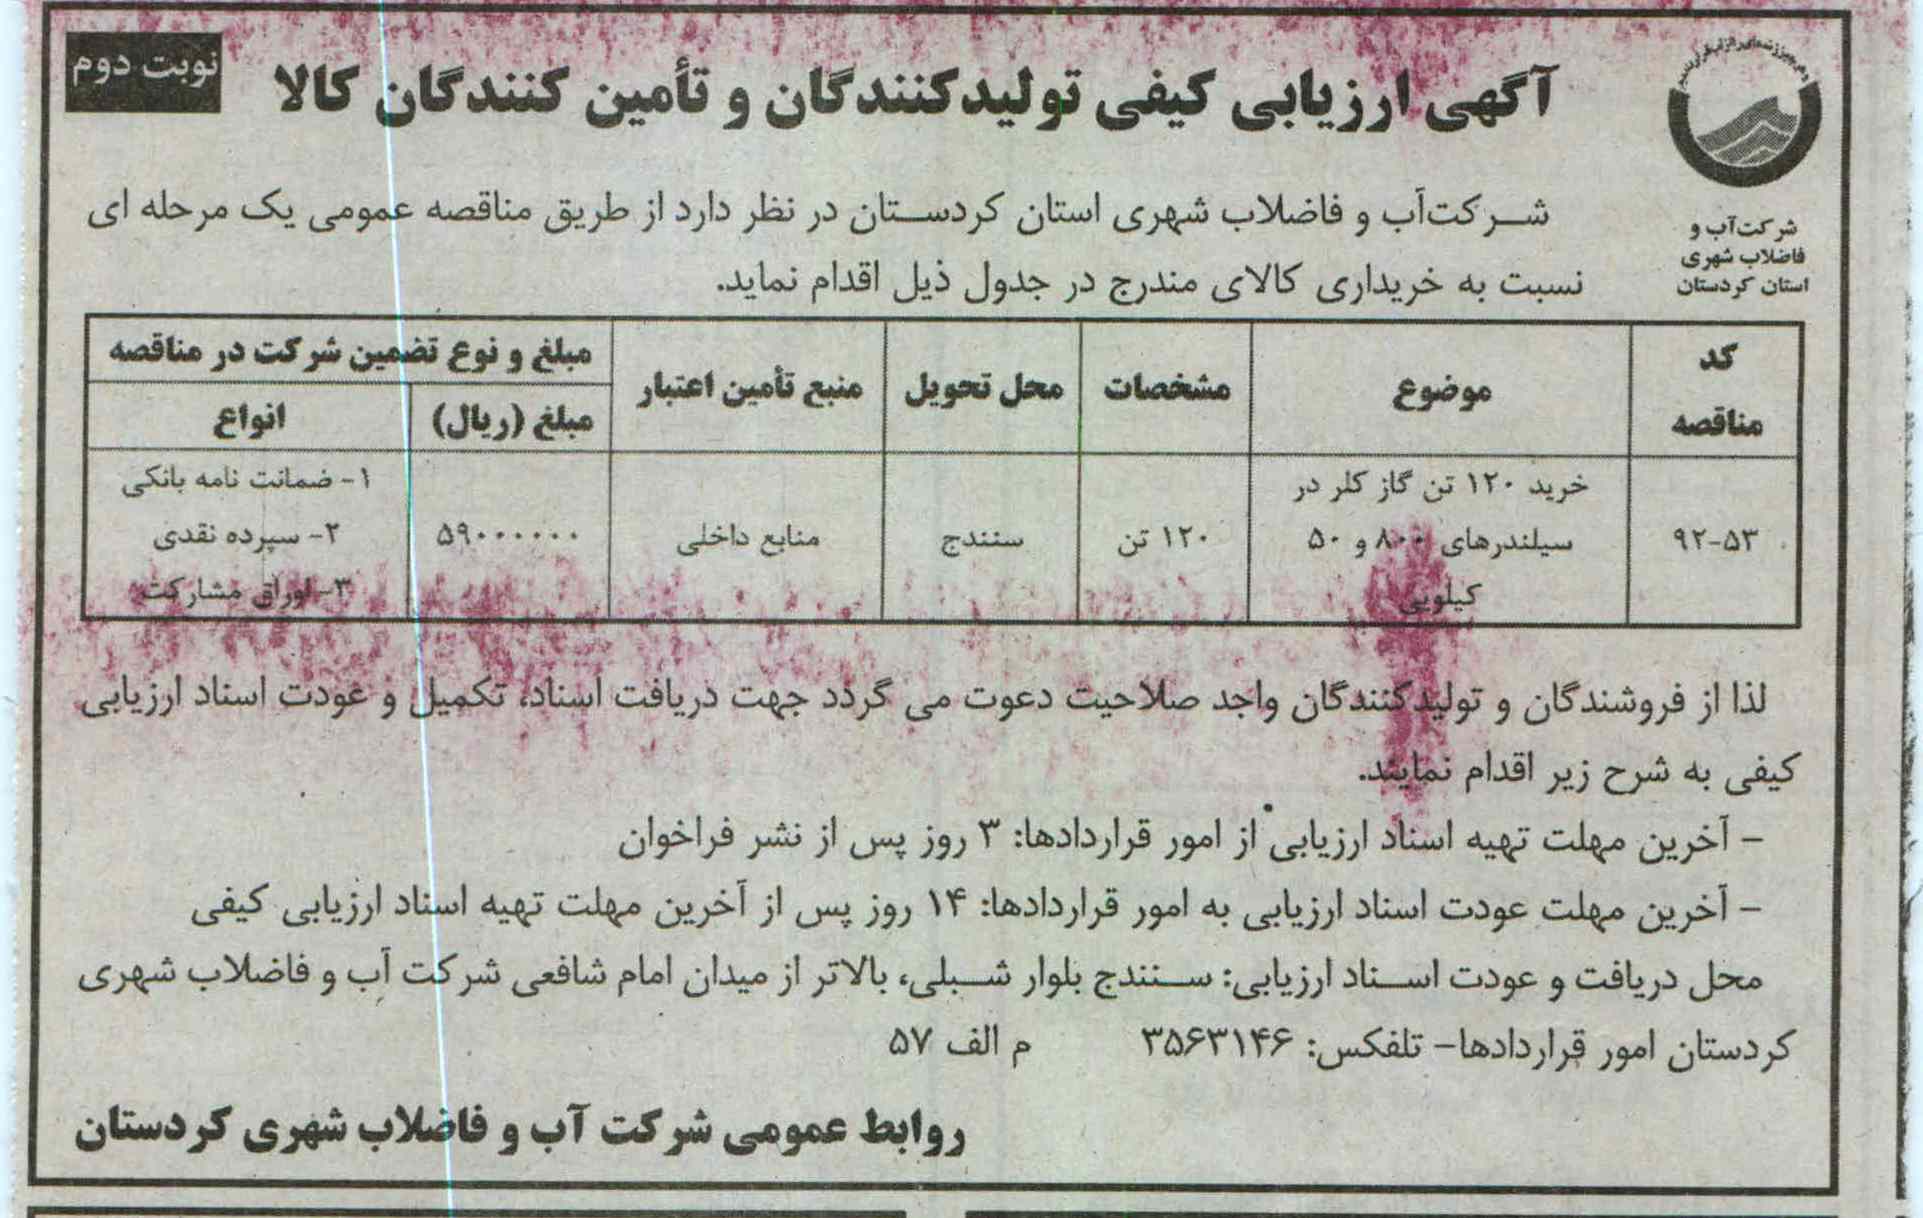 نوبت دوم
آگهی ارزیابی کیفی تولیدکنندگان و تأمین کنندگان کالا
شرکت‌آب و
فاضلاب شهری
استان کردستان
شرکت‌آب و فاضلاب شهری استان کردستان در نظر دارد از طریق مناقصه عمومی یک مرحله ای
نسبت به خریداری کالای مندرج در جدول ذیل اقدام نماید.
کد مناقصه | موضوع | مشخصات | محل تحویل | منبع تأمین اعتبار | مبلغ و نوع تضمین شرکت در مناقصه
مبلغ (ریال) | انواع
۹۲-۵۳ | خرید ۱۲۰ تن گاز کلر در سیلندرهای ۸۰۰ و ۵۰ کیلویی | ۱۲۰ تن | سنندج | منابع داخلی | ۵۹۰۰۰۰۰۰۰ | ۱- ضمانت نامه بانکی
۲- سپرده نقدی
۳- اوراق مشارکت
لذا از فروشندگان و تولیدکنندگان واجد صلاحیت دعوت می گردد جهت دریافت اسناد، تکمیل و عودت اسناد ارزیابی
کیفی به شرح زیر اقدام نمایند.
– آخرین مهلت تهیه اسناد ارزیابی از امور قراردادها: ۳ روز پس از نشر فراخوان
– آخرین مهلت عودت اسناد ارزیابی به امور قراردادها: ۱۴ روز پس از آخرین مهلت تهیه اسناد ارزیابی کیفی
محل دریافت و عودت اسناد ارزیابی: سنندج بلوار شبلی، بالاتر از میدان امام شافعی شرکت آب و فاضلاب شهری
کردستان امور قراردادها– تلفکس: ۳۵۶۳۱۴۶ م الف ۵۷
روابط عمومی شرکت آب و فاضلاب شهری کردستان